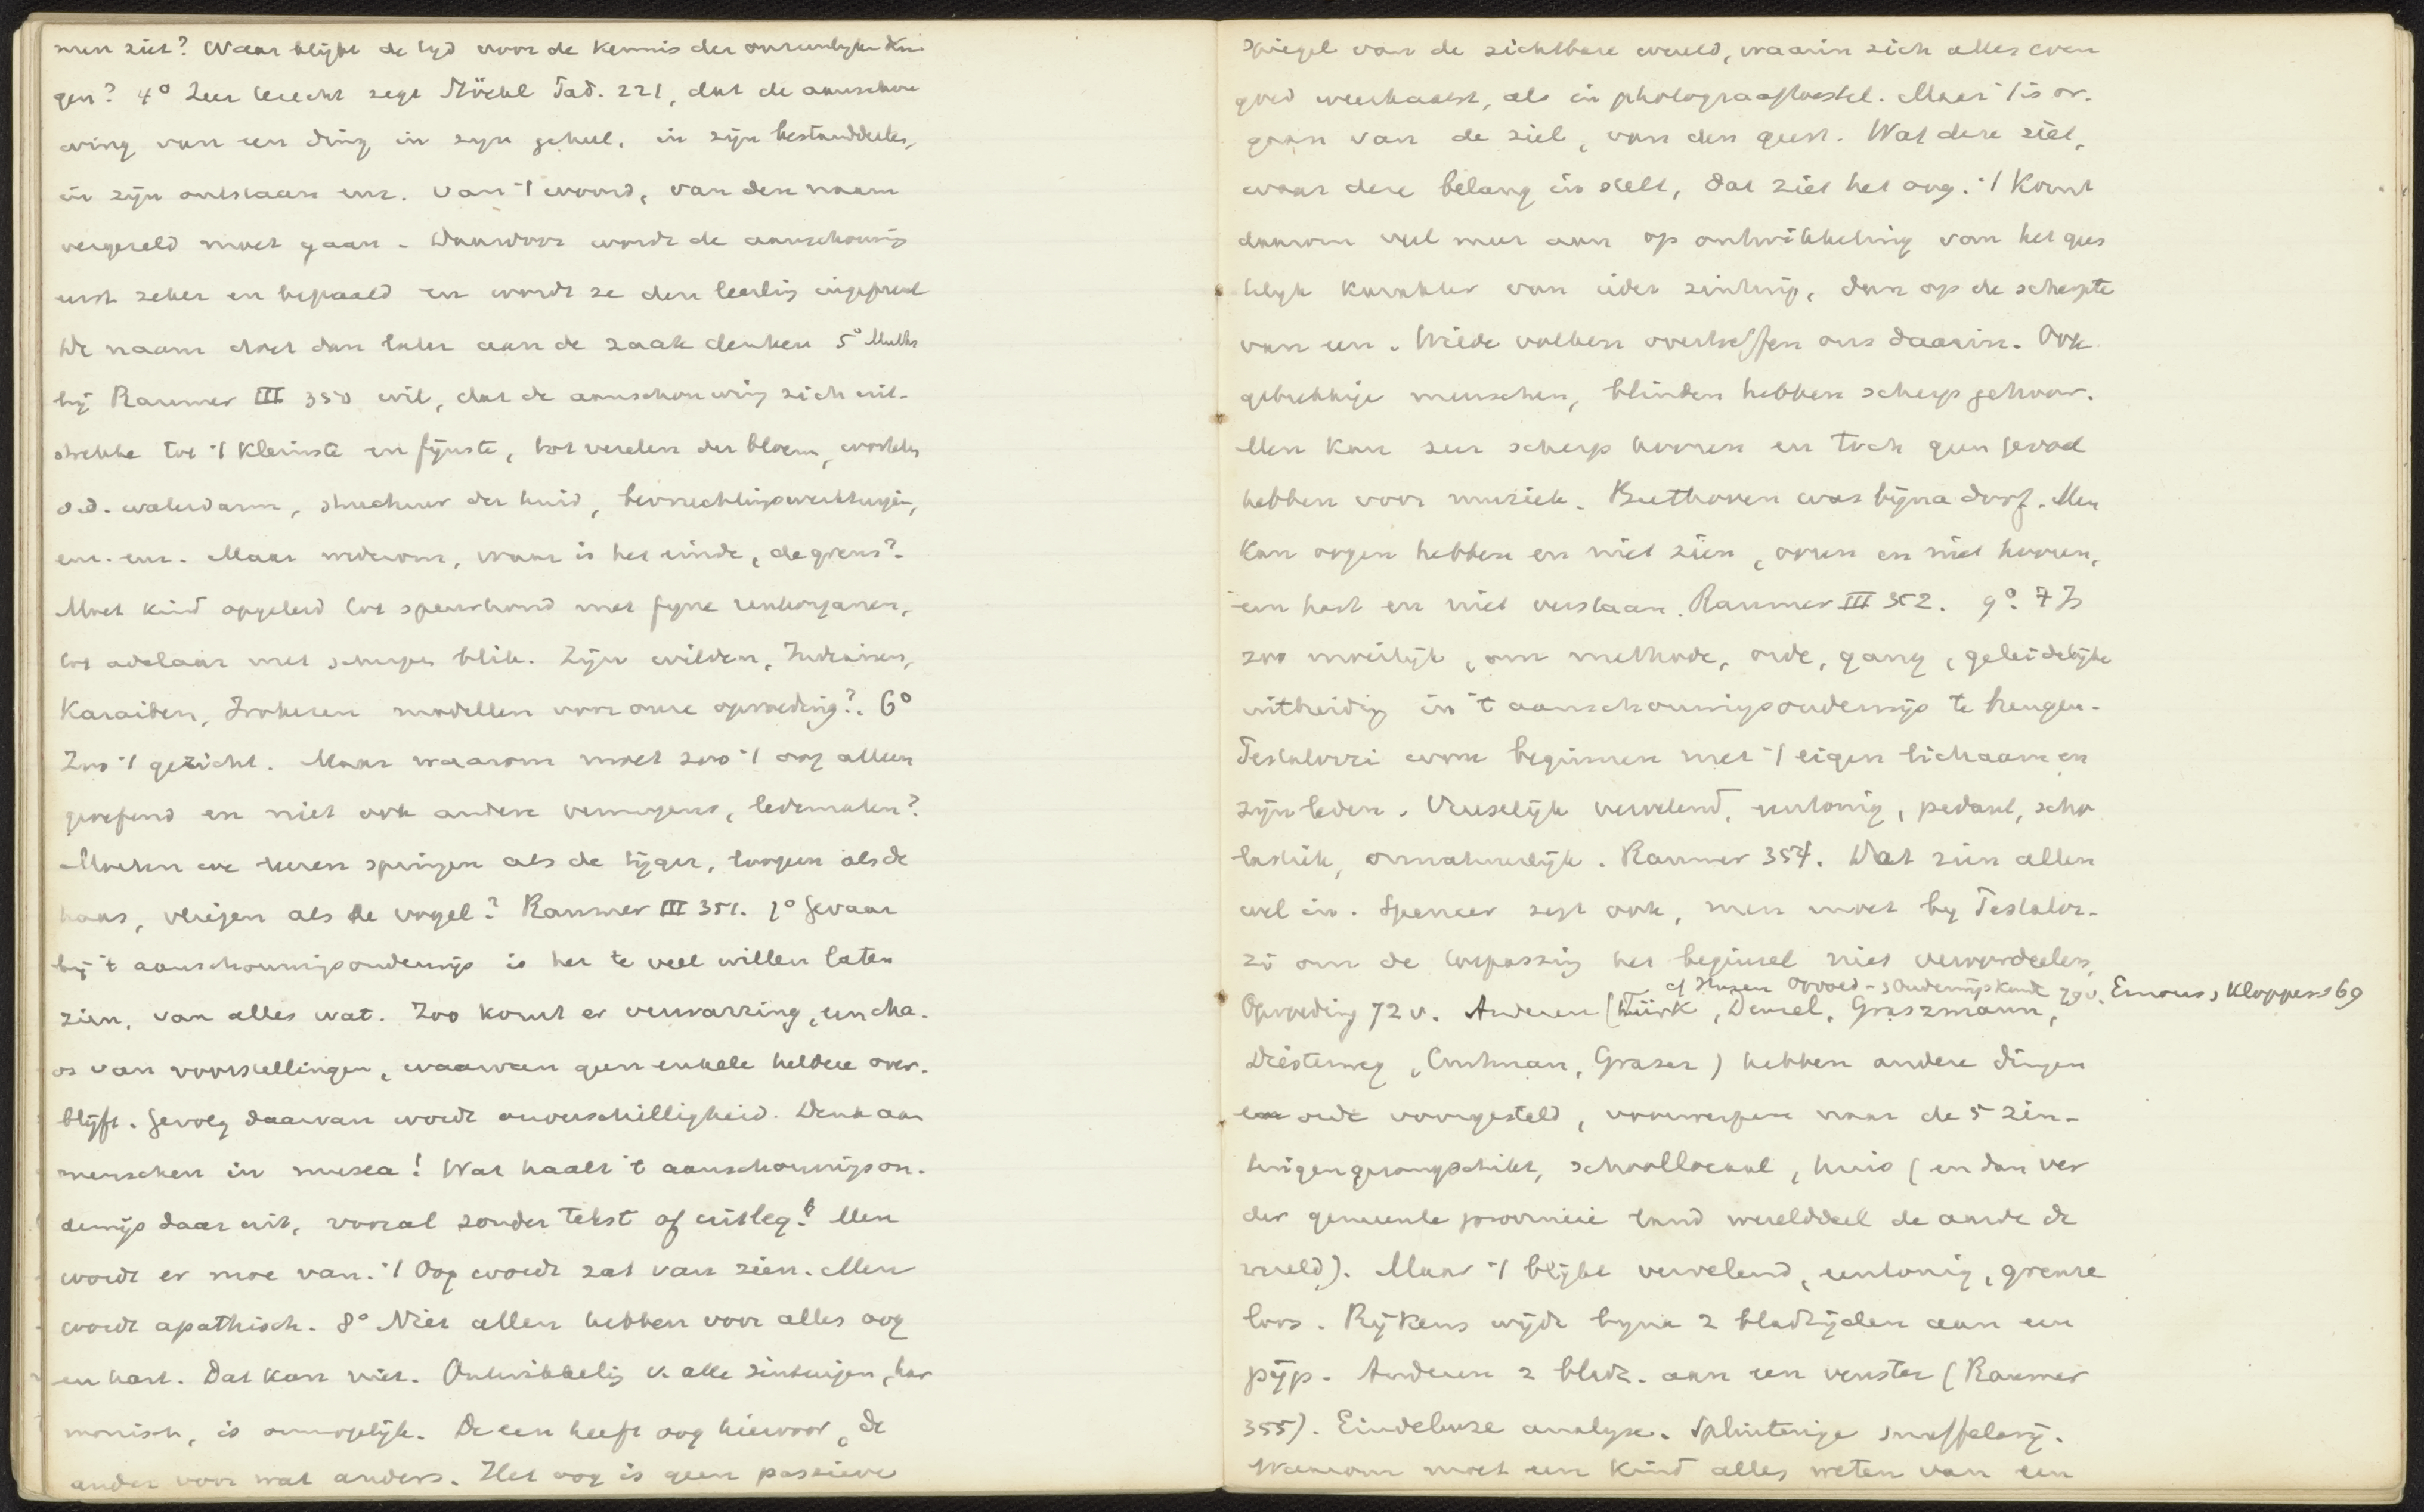 men ziet? Waar blijft de tijd voor de kennis der onzienlyke din
gen? 4° Zeer terecht zegt Stöckl Päd. 221, dat de aanschou
wing van een ding in zyn geheel, in zijn bestanddeelen,
in zijn ontstaan enz. van 't woord, van den naam
vergezeld moet gaan. Daardoor wordt de aanschouwing
eerst zeker en bepaald en wordt ze den leerling ingeprent
De naam doet dan later aan de zaak denken 5°
bij Raumer III 350 wil, dat de aanschouwing zich uit-
strekke tot 't kleinste en fijnste, tot vezelen der bloem, wortels
o.d. waterdarm, structuur der huid, bevruchtingswerktuigen,
enz. enz. Maar wederom, waar is het einde, de grens?
Moet kind opgeleid tot speurhond met fyne reukorganen,
tot adelaar met scherpen blik. Zijn wilden, Indianen,
Karaiben, Irokezen modellen voor onze opvoeding? 6°
Zoo 't gezicht. Maar waarom moet zoo 't oog alleen
geoefend en niet ook andere vermogens, ledematen?
Moeten we leeren springen als de tijger, loopen als de
haas, vliegen als de vogel? Raumer III 351. 7° Gevaar
bij 't aanschouwingsonderwijs is het te veel willen laten
zien, van alles wat. Zoo komt er verwarring, een cha-
os van voorstellingen, waarvan geen enkele heldere over-
blijft. Gevolg daarvan wordt onverschilligheid. Denk aan
menschen in musea! Wat haalt 't aanschouwingson-
derwijs daar uit, vooral zonder tekst of uitleg? Men
wordt er moe van. 't Oog wordt zat van zien. Men
wordt apathisch. 8° Niet allen hebben voor alles oog
en hart. Dat kan niet. Ontwikkeling v. alle zintuigen, har
monisch, is onmogelijk. De een heeft oog hiervoor, de
ander voor wat anders. Het oog is geen passieve
spiegel van de zichtbare wereld, waarin zich alles even
goed weerkaatst, als in photograaftoestel. Maar 't is or-
gaan van de ziel, van den geest. Wat deze ziet,
waar deze belang in stelt, dat ziet het oog. 't Komt
daarom veel meer aan op ontwikkeling van het gees
telijk karakter van ieder zintuig, dan op de scherpte
van een. Wilde volken overtreffen ons daarin. Ook
gebrekkige menschen, blinden hebben scherp gehoor.
Men kan zeer scherp hooren en toch geen gevoel
hebben voor muziek. Beethoven was bijna doof. Men
kan oogen hebben en niet zien, ooren en niet hooren,
een hart en niet verstaan. Raumer III 352. 9° 't Is
zoo moeilijk, om methode, orde, gang, geleidelijke
uitbreiding in 't aanschouwingsonderwijs te brengen.
Pestalozzi wou beginnen met 't eigen lichaam en
zijn leden. Vreeselijk vervelend, eentonig, pedant, scho
lastiek, onnatuurlijk. Raumer 354. Dat zien allen
wel in. Spencer zegt ook, men moet by Pestaloz-
zi om de toepassing het beginsel niet veroordeelen,
cf Opvoed- en Onderwijskunde
Opvoeding 72 v. Anderen (Türk, Denzel, Graszmann,
Diesterweg, Graser) hebben andere dingen
en orde voorgesteld, voorwerpen naar de 5 zin-
tuigen gerangschikt, schoollocaal, huis (en dan ver
der gemeente provincie land werelddeel de aarde de
wereld). Maar 't blijft vervelend, eentonig, grenze
loos. Rijkens wijdt byna 2 bladzijden aan een
pijp. Anderen 2 bladz. aan een venster (Raumer
355). Eindelooze analyse. Splinterige snuffelary.
Waarom moet een kind alles weten van een